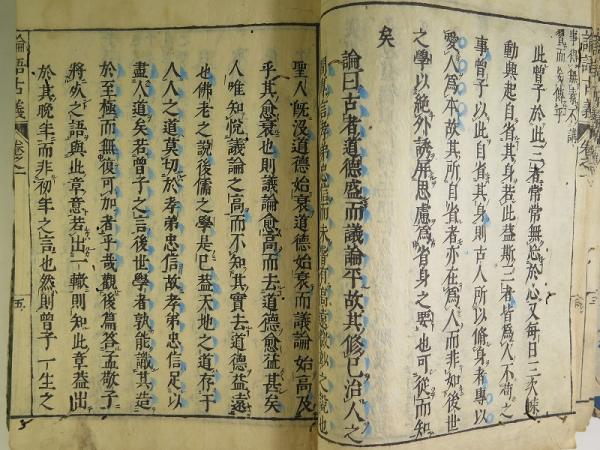 此曾子於此三者常常無忘於心又每日三次竦
動興起自省其身若此蓋斯三者皆爲人不苟之
事曾子以此自省其身則古人所以修身者專以
愛人爲本故其所自省者亦在爲人而非如後世
之學以絶外誘屏思慮爲省身之要也可從而知
矣
論曰古者道德盛而議論平故其修己治人之
聖人既沒道德始衰道德始衰而議論始高及
乎其愈衰也則議論愈高而去道德愈益甚矣
人唯知悦議論之高而不知其實去道德益遠
也佛老之説後儒之學是已蓋天地之道存于
人人之道莫切於孝弟忠信故孝弟忠信足以
盡人道矣若曾子之言後世學者孰能識其造
於至極而無復可加者乎哉觀後篇答孟敬子
將死之語與此章意若出一轍則知此章蓋出
於其晚年而非初年之言也然則曾子一生之
論語古義 卷之一
五